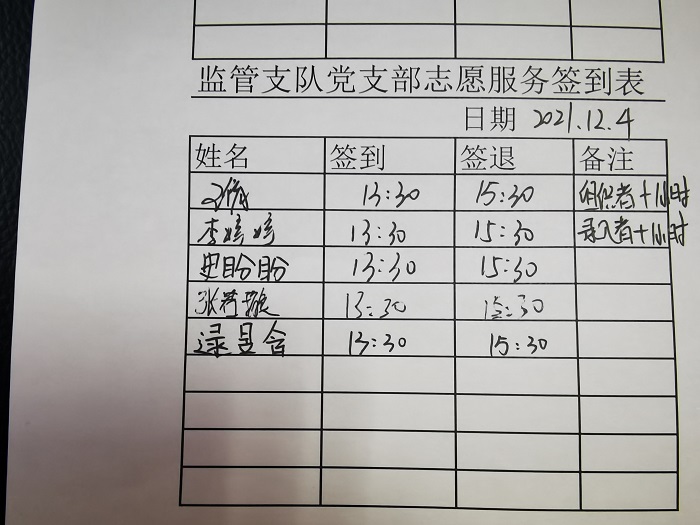 监管支队党支部志愿服务签到表
日期 2021.12.4
姓名 签到 签退 备注
13:30 15:30 组织者+1小时
李婷婷 13:30 15:30 录入者+1小时
史盼盼 13:30 15:30
张 13:30 15:30
逯昱含 13:30 15:30